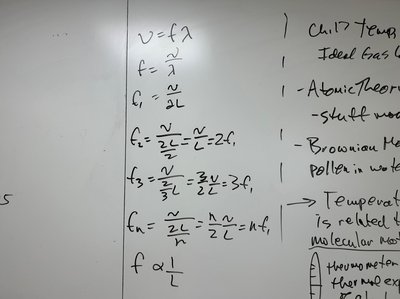 v = fλ
f = v/λ
f₁ = v/2L
f₂ = v/(2L/2) = v/L = 2f₁
f₃ = v/(2/3 L) = 3v/2L = 3f₁
fₙ = v/(2L/n) = n v/2L = nf₁
f ∝ 1/L
5
Ch17 Temp
Ideal Gas
- Atomic Theor
- stuff
- Brownian
pollen in wat
→ Temperat
is related t
molecular
thermometer
thermal exp